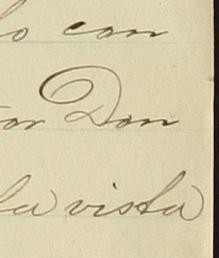 lo con
or Don
la vista